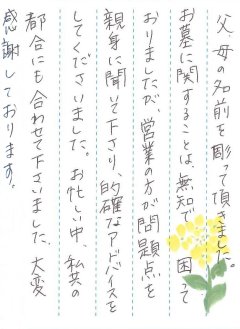 父、母の名前を彫って頂きました。
お墓に関することは無知で、困って
おりましたが、営業の方が問題点を
親身に聞いて下さり、的確なアドバイスを
してくださいました。お忙しい中、私共の
都合にも合わせて下さいました。大変
感謝しております。